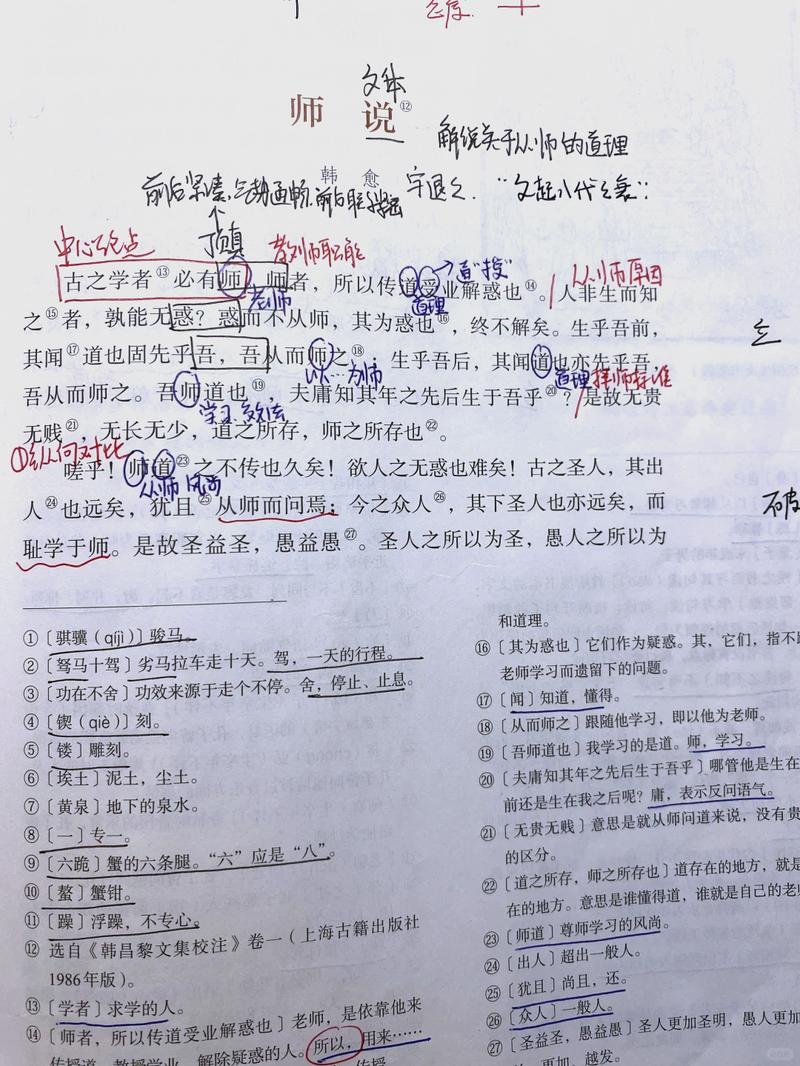 文体
师 说⑫
解说关于从师的道理
韩 愈
字退之.“文起八代之衰”
前后紧凑,气势通畅,
顶真
中心论点
教师职能
道 “授”
从师原因
古之学者⑬必有师。师者，所以传道受业解惑也⑭。人非生而知
老师
道理
之⑮者，孰能无惑？惑而不从师，其为惑也⑯，终不解矣。生乎吾前，
其闻⑰道也固先乎吾，吾从而师之⑱。生乎吾后，其闻道也亦先乎吾，
以…为师
道理
择师标准
吾从而师之。吾师道也⑲，夫庸知其年之先后生于吾乎⑳？是故无贵
学习 效法
无贱㉑，无长无少，道之所存，师之所存也㉒。
①纵向对比
嗟乎！师道㉓之不传也久矣！欲人之无惑也难矣！古之圣人，其出
从师 风尚
人㉔也远矣，犹且㉕从师而问焉；今之众人㉖，其下圣人也亦远矣，而
耻学于师。是故圣益圣，愚益愚㉗。圣人之所以为圣，愚人之所以为
①〔骐骥（qíjì）〕骏马。
②〔驽马十驾〕劣马拉车走十天。驾，一天的行程。
③〔功在不舍〕功效来源于走个不停。舍，停止、止息。
④〔锲（qiè）〕刻。
⑤〔镂〕雕刻。
⑥〔埃土〕泥土，尘土。
⑦〔黄泉〕地下的泉水。
⑧〔一〕专一。
⑨〔六跪〕蟹的六条腿。“六”应是“八”。
⑩〔螯〕蟹钳。
⑪〔躁〕浮躁，不专心。
⑫ 选自《韩昌黎文集校注》卷一（上海古籍出版社
1986年版）。
⑬〔学者〕求学的人。
⑭〔师者，所以传道受业解惑也〕老师，是依靠他来
传授道、教授学业、解除疑惑的人。所以，用来……
和道理。
⑯〔其为惑也〕它们作为疑惑。其，它们，指不跟
老师学习而遗留下的问题。
⑰〔闻〕知道，懂得。
⑱〔从而师之〕跟随他学习，即以他为老师。
⑲〔吾师道也〕我学习的是道。师，学习。
⑳〔夫庸知其年之先后生于吾乎〕哪管他是生在
前还是生在我之后呢？庸，表示反问语气。
㉑〔无贵无贱〕意思是就从师问道来说，没有贵
的区分。
㉒〔道之所存，师之所存也〕道存在的地方，就是
在的地方。意思是谁懂得道，谁就是自己的老
㉓〔师道〕尊师学习的风尚。
㉔〔出人〕超出一般人。
㉕〔犹且〕尚且，还。
㉖〔众人〕一般人。
㉗〔圣益圣，愚益愚〕圣人更加圣明，愚人更加
更加、越发。